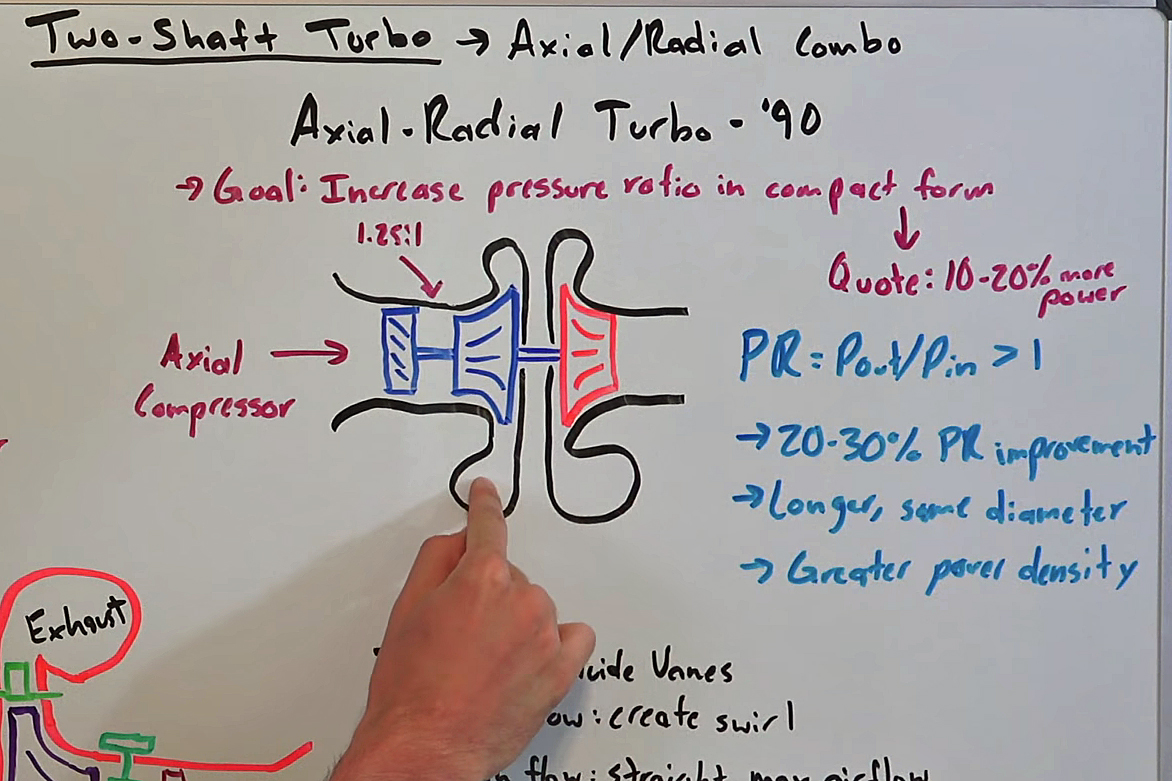 Two-Shaft Turbo → Axial/Radial Combo
Axial-Radial Turbo - '90
→ Goal: Increase pressure ratio in compact form
1.25:1
Quote: 10-20% more
power
Axial
Compressor
PR = Pout/Pin > 1
→ 20-30% PR improvement
→ Longer, same diameter
→ Greater power density
Exhaust
Vanes
: create swirl
flow: straight, max airflow